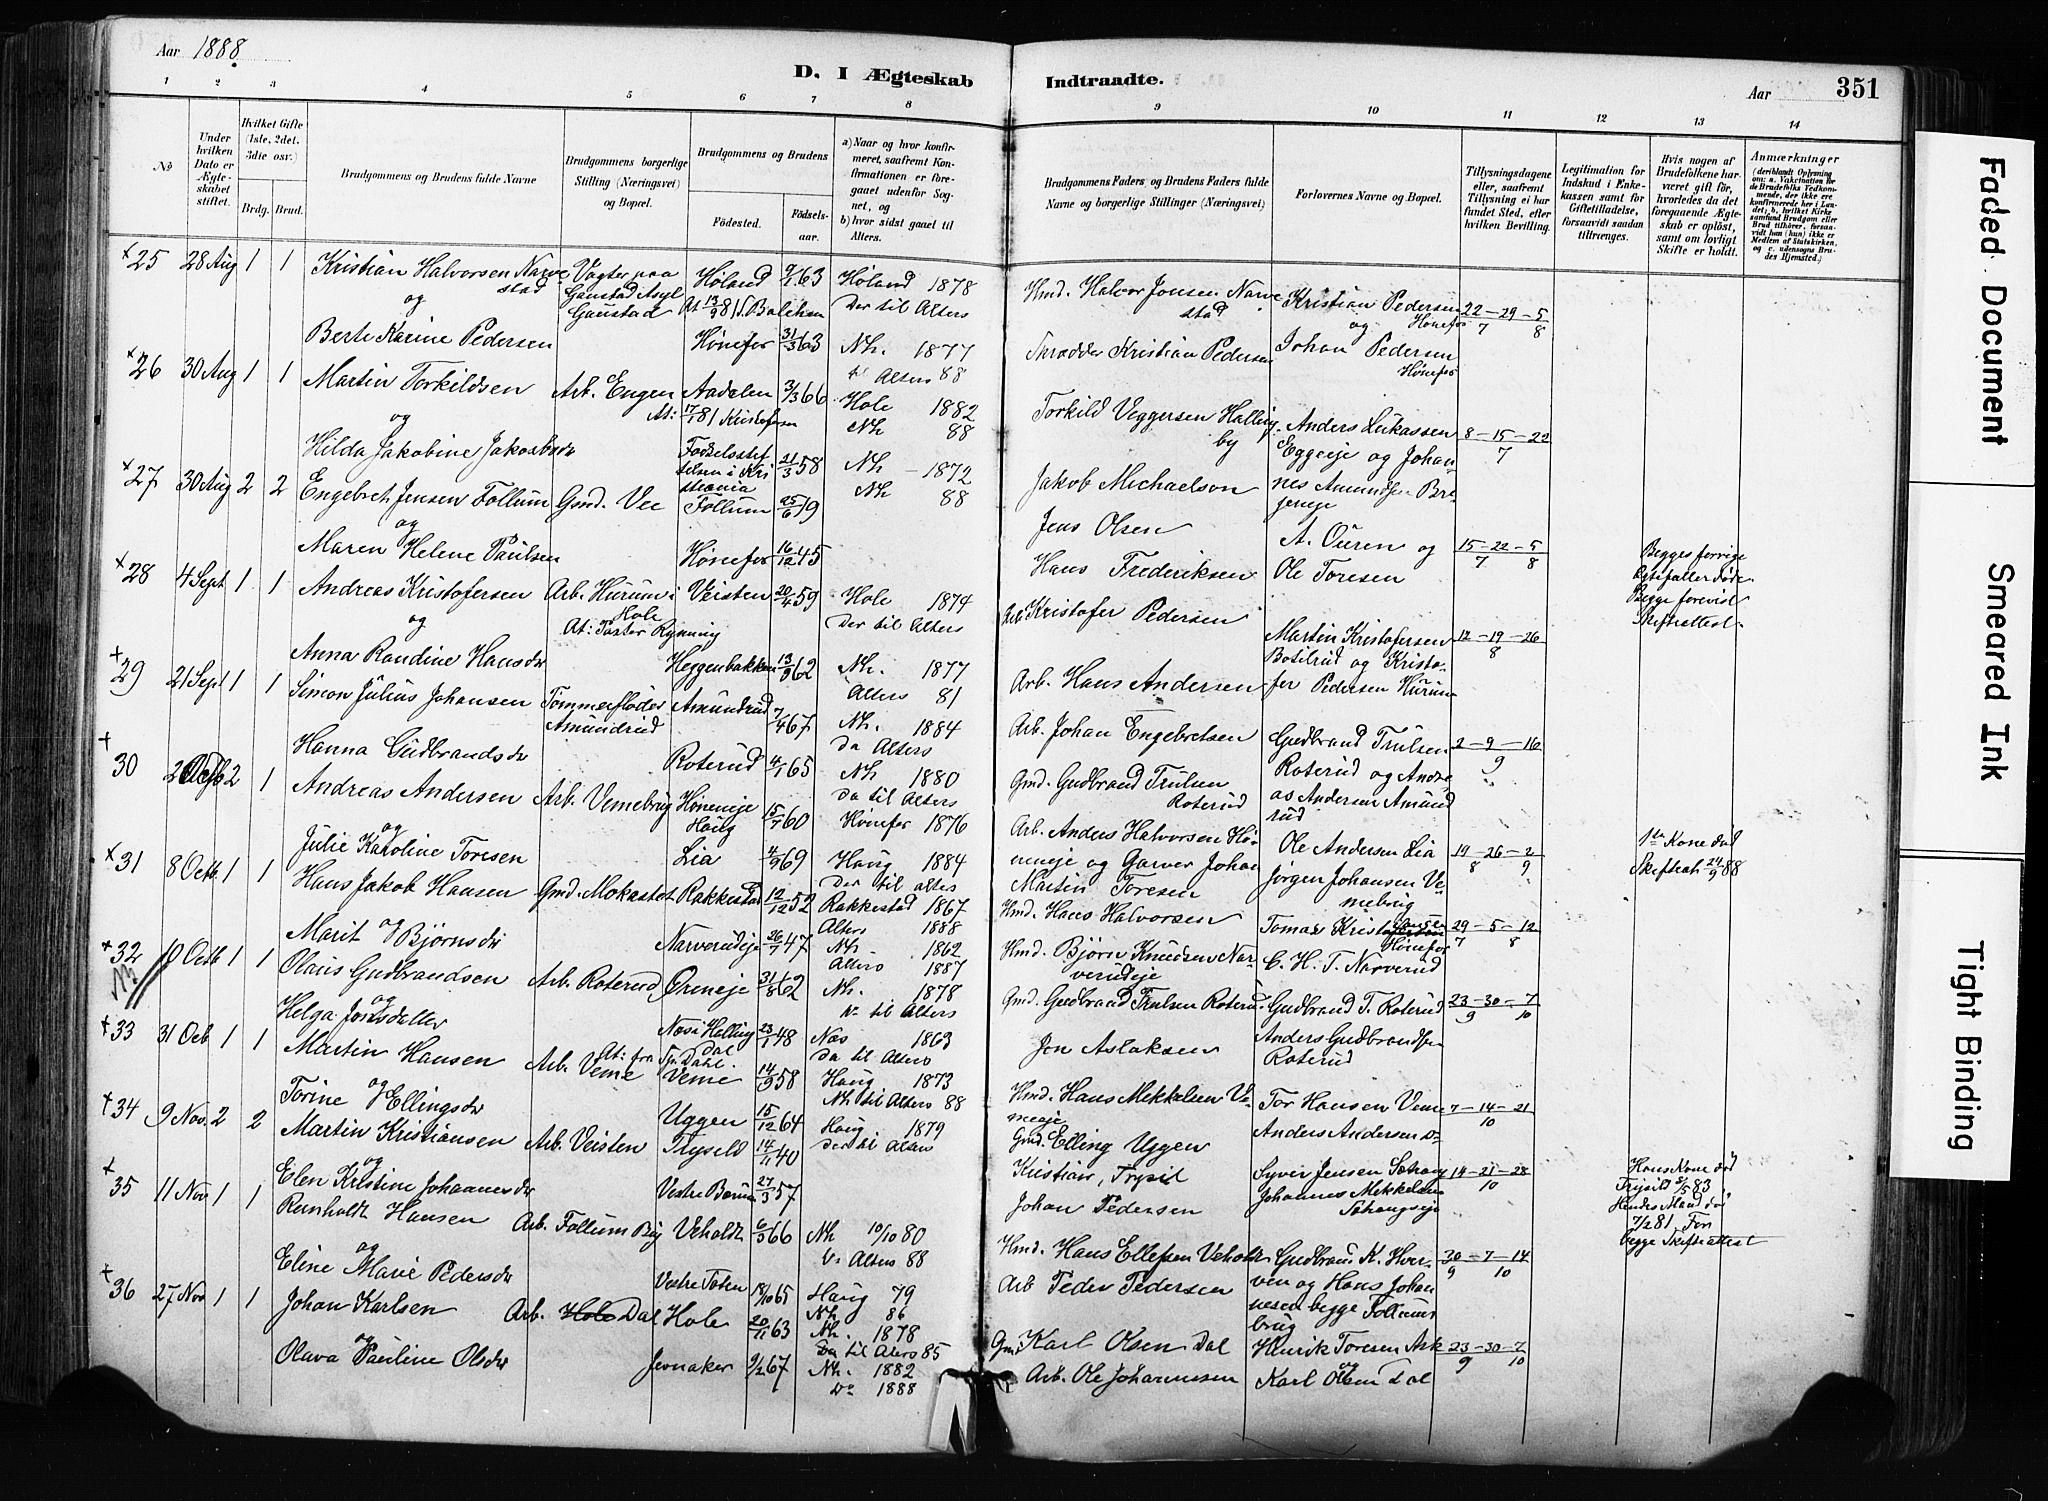 Aar 1888.
D. I Ægteskab Indtraadte.
Aar 351
1 2 3 4 5 6 7 8 9 10 11 12 13 14
No
Under hvilken Dato er Ægteskabet stiftet.
Hvilket Gifte (1ste, 2det, 3die osv.)
Brdg. Brud.
Brudgommens og Brudens fulde Navne
Brudgommens borgerlige Stilling (Næringsvei) og Bopæl.
Brudgommens og Brudens
Fødested. Fødselsaar.
a) Naar og hvor konfirmeret, saafremt Konfirmationen er foregaaet udenfor Sognet, og
b) hvor sidst gaaet til Alters.
Brudgommens Faders og Brudens Faders fulde Navne og borgerlige Stillinger (Næringsvei)
Forlovernes Navne og Bopæl.
Tillysningsdagene eller, saafremt Tillysning ei har fundet Sted, efter hvilken Bevilling.
Legitimation for Indskud i Enkekassen samt for Giftetilladelse, forsaavidt saadan tiltrænges.
Hvis nogen af Brudefolkene har været gift før, hvorledes da det foregaaende Ægteskab er opløst, samt om lovligt Skifte er holdt.
Anmærkninger
25 28 Aug 1 1 Kristian Halvorsen Narvestad Vagter paa Gaustad Asyl Gaustad Høland 9/1 63 Høland 1878 Der til Alters Hmd. Halvor Jonsen Narvestad Kristian Pedersen Hønefos 22-29-5 7 8
og
Berte Karine Pedersen Hønefos 31/3 63 Nh. 1877 til Alters 88 Skrædder Kristian Pedersen og Johan Pedersen Hønefos
26 30 Aug 1 1 Martin Torkildsen Arb. Engen Aadalen 3/3 66 Hole 1882 Nh 88 Torkild Veggersen Hallingby Anders Lukassen Eggeeje og Johan- 8-15-22 7
og
Hilda Jakobine Jakobsdr Fødselsstiftelsen i Kristiania 21/3 58 Nh 1872 Nh 88 Jakob Michaelson nes Amundsen
27 30 Aug 2 2 Engebret Jensen Follum Gmd. Vee Follum 25/6 19 Jens Olsen A. Ouren og 15-22-5 7 8 Begges forrige Ægtefæller døde Begge forevist Skifteattest.
og
Maren Helene Paulsen Hønefos 16/12 45 Hans Frederiksen Ole Toresen
28 4 Sept 1 1 Andreas Kristofersen Arb. Hurum i Hole Veisten 20/4 59 Hole 1874 Der til Alters Arb Kristofer Pedersen Martin Kristofersen Botilrud og Kristo- 12-19-26 8
og
Anna Randine Hansdr Heggenbakken 13/9 62 Nh. 1877 Alters 81 Arb. Hans Andersen fer Pedersen Hurum
29 21 Sept 1 1 Simon Julius Johansen Tømmerfløder Amundrud Amundrud 7/4 67 Nh. 1884 Da Alters Arb. Johan Engebretsen Gudbrand Trulsen 2-9-16 9
Hanna Gudbrandsdr Roterud 4/1 65 Nh 1880 Da til Alters Gmd. Gudbrand Trulsen Roterud Roterud og Andreas Andersen Amundrud
30 2 1 Andreas Andersen Arb. Vemebrug Høneneje Haug 15/7 60 Hønefos 1876 Arb. Anders Halvorsen Høneneje og Garver Johan Ole Andersen Lia 19-26-2 8 9 1ste Kone død Skifteatt 24/9 88
og
Julie Karoline Toresen Lia 4/9 69 Haug 1884 Der til alters Martin Toresen Jørgen Johansen Vemebrug
31 8 Octb. 1 1 Hans Jakob Hansen Gmd. Mokastet Rakkestad 12/12 52 Rakkestad 1867 Alters 1888 Hmd. Hans Halvorsen Tomas Hønefos 29-5-12 7 8
og
Marit Bjørnsdr Narverudeje 26/7 47 Nh. 1862 Alters 1887 Hmd. Bjørn Knudsen Narverudeje C. H. T. Narverud
32 10 Octb 1 1 Olaus Gudbrandsen Arb. Roterud Ørneeje 31/8 62 Nh. 1878 til Alters Gmd. Gudbrand Trulsen Roterud Gudbrand T. Roterud 23-30-7 9 10
og
Helga Jonsdatter Næs i Hallingdal 23/1 48 Næs 1863 Da til Alters Jon Aslaksen Anders Gudbrandsen Roterud
33 31 Octb 1 1 Martin Hansen Arb. Veme Veme 14/9 58 Haug 1873 Nh til Alters 88 Hmd. Hans Mekkelsen Vemeeje Tor Hansen Veme 7-14-21 10
og
Torine Ellingsdr Uggen 15/12 64 Haug 1879 Der til Alters Gmd. Elling Uggen Anders Andersen
34 9 Nov. 2 2 Martin Kristiansen Arb. Veisten Trysild 14/11 40 Kristian, Trysil Syver Jensen 14-21-28 10 Hans Kone død Trysild 5/5 83 Hendes Mand død 7/2 81 For begge Skifteattest
og
Elen Kristine Johannesdr Vestre Bærum 27/3 57 Johan Pedersen Johannes Mekkelsen
35 11 Nov 1 1 Reinholdt Hansen Arb. Follum Brug Veholdt 6/3 66 Nh 10/10 80 Alters 88 Hmd. Hans Ellefsen Veholdt Gudbrand K. Hverven og Hans Johannesen begge Follumsbrug 30-7-14 9 10
og
Eline Marie Pedersdr Vestre Toten 18/10 65 Haug 79 Nh 86 Arb Peder Pedersen
36 27 Nov 1 1 Johan Karlsen Arb. Dal Hole 20/11 63 Nh. 1878 Da til Alters 85 Gmd Karl Olsen Dal Henrik Toresen Ask 23-30-7 9 10
og
Olava Pauline Olsdr Jevnaker 9/2 67 Nh. 1882 Do 1888 Arb. Ole Johannesen og Karl Olsen Dal
Faded Document
Smeared Ink
Tight Binding